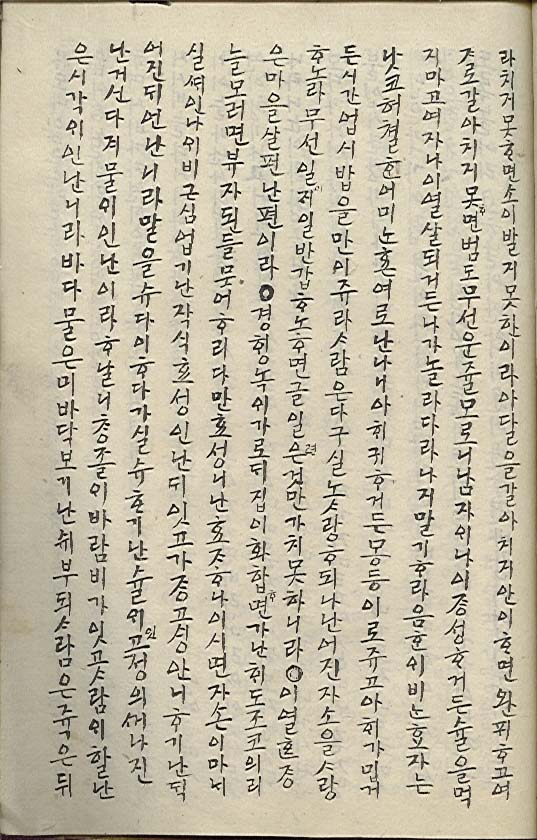 라치지못ᄒᆞ면소이발지못한이라아달을갈아치지안이ᄒᆞ면완피ᄒᆞ고여
ᄌᆞ로갈아치지못ᄒᆞ면범도무선운쥴모로니남자의나이종성ᄒᆞ거든슐을먹
지마고여자나이열살되거든나가놀라다라나지말기ᄒᆞ라음ᄒᆞᆫ의비ᄂᆞᆫ효자는
낫코허쳘ᄒᆞᆫ어미노ᄒᆞᆫ여로난나니아히귀ᄒᆞ거든몽동이로쥬고아히가밉거
든시간업시밥을만이쥬라ᄉᆞ람은다구실노ᄉᆞ랑ᄒᆞ되나난어진자소을ᄉᆞ랑
ᄒᆞ노라무선일이제일반갑ᄒᆞ노ᄒᆞ면글일은겁만가치못하니라◯이열ᄒᆞᆫ종
은마음을살펀난편이라◯경ᄒᆡᆼ녹의가로되집이화합ᄒᆞ면가난ᄒᆡ도조코의리
늘모러면부자된들뭇어ᄒᆞ리다만효성니난효ᄌᆞᄒᆞ나이시면자손이마네
실쎠인나의비근심업기난작식효성인난듸잇고가쟝고ᄉᆡᆼ안니ᄒᆞ기난듹
어진듸언난니라말을슈다이ᄒᆞ다가실슈ᄒᆞ기난슐에인고졍의세나진
난거선다져물의인난이라ᄒᆞ날니층졸의바람비가잇고ᄉᆞ람의할난
은시각의인난니라바다물은미바닥보기난쉬부되ᄉᆞ람은쥭은뒤